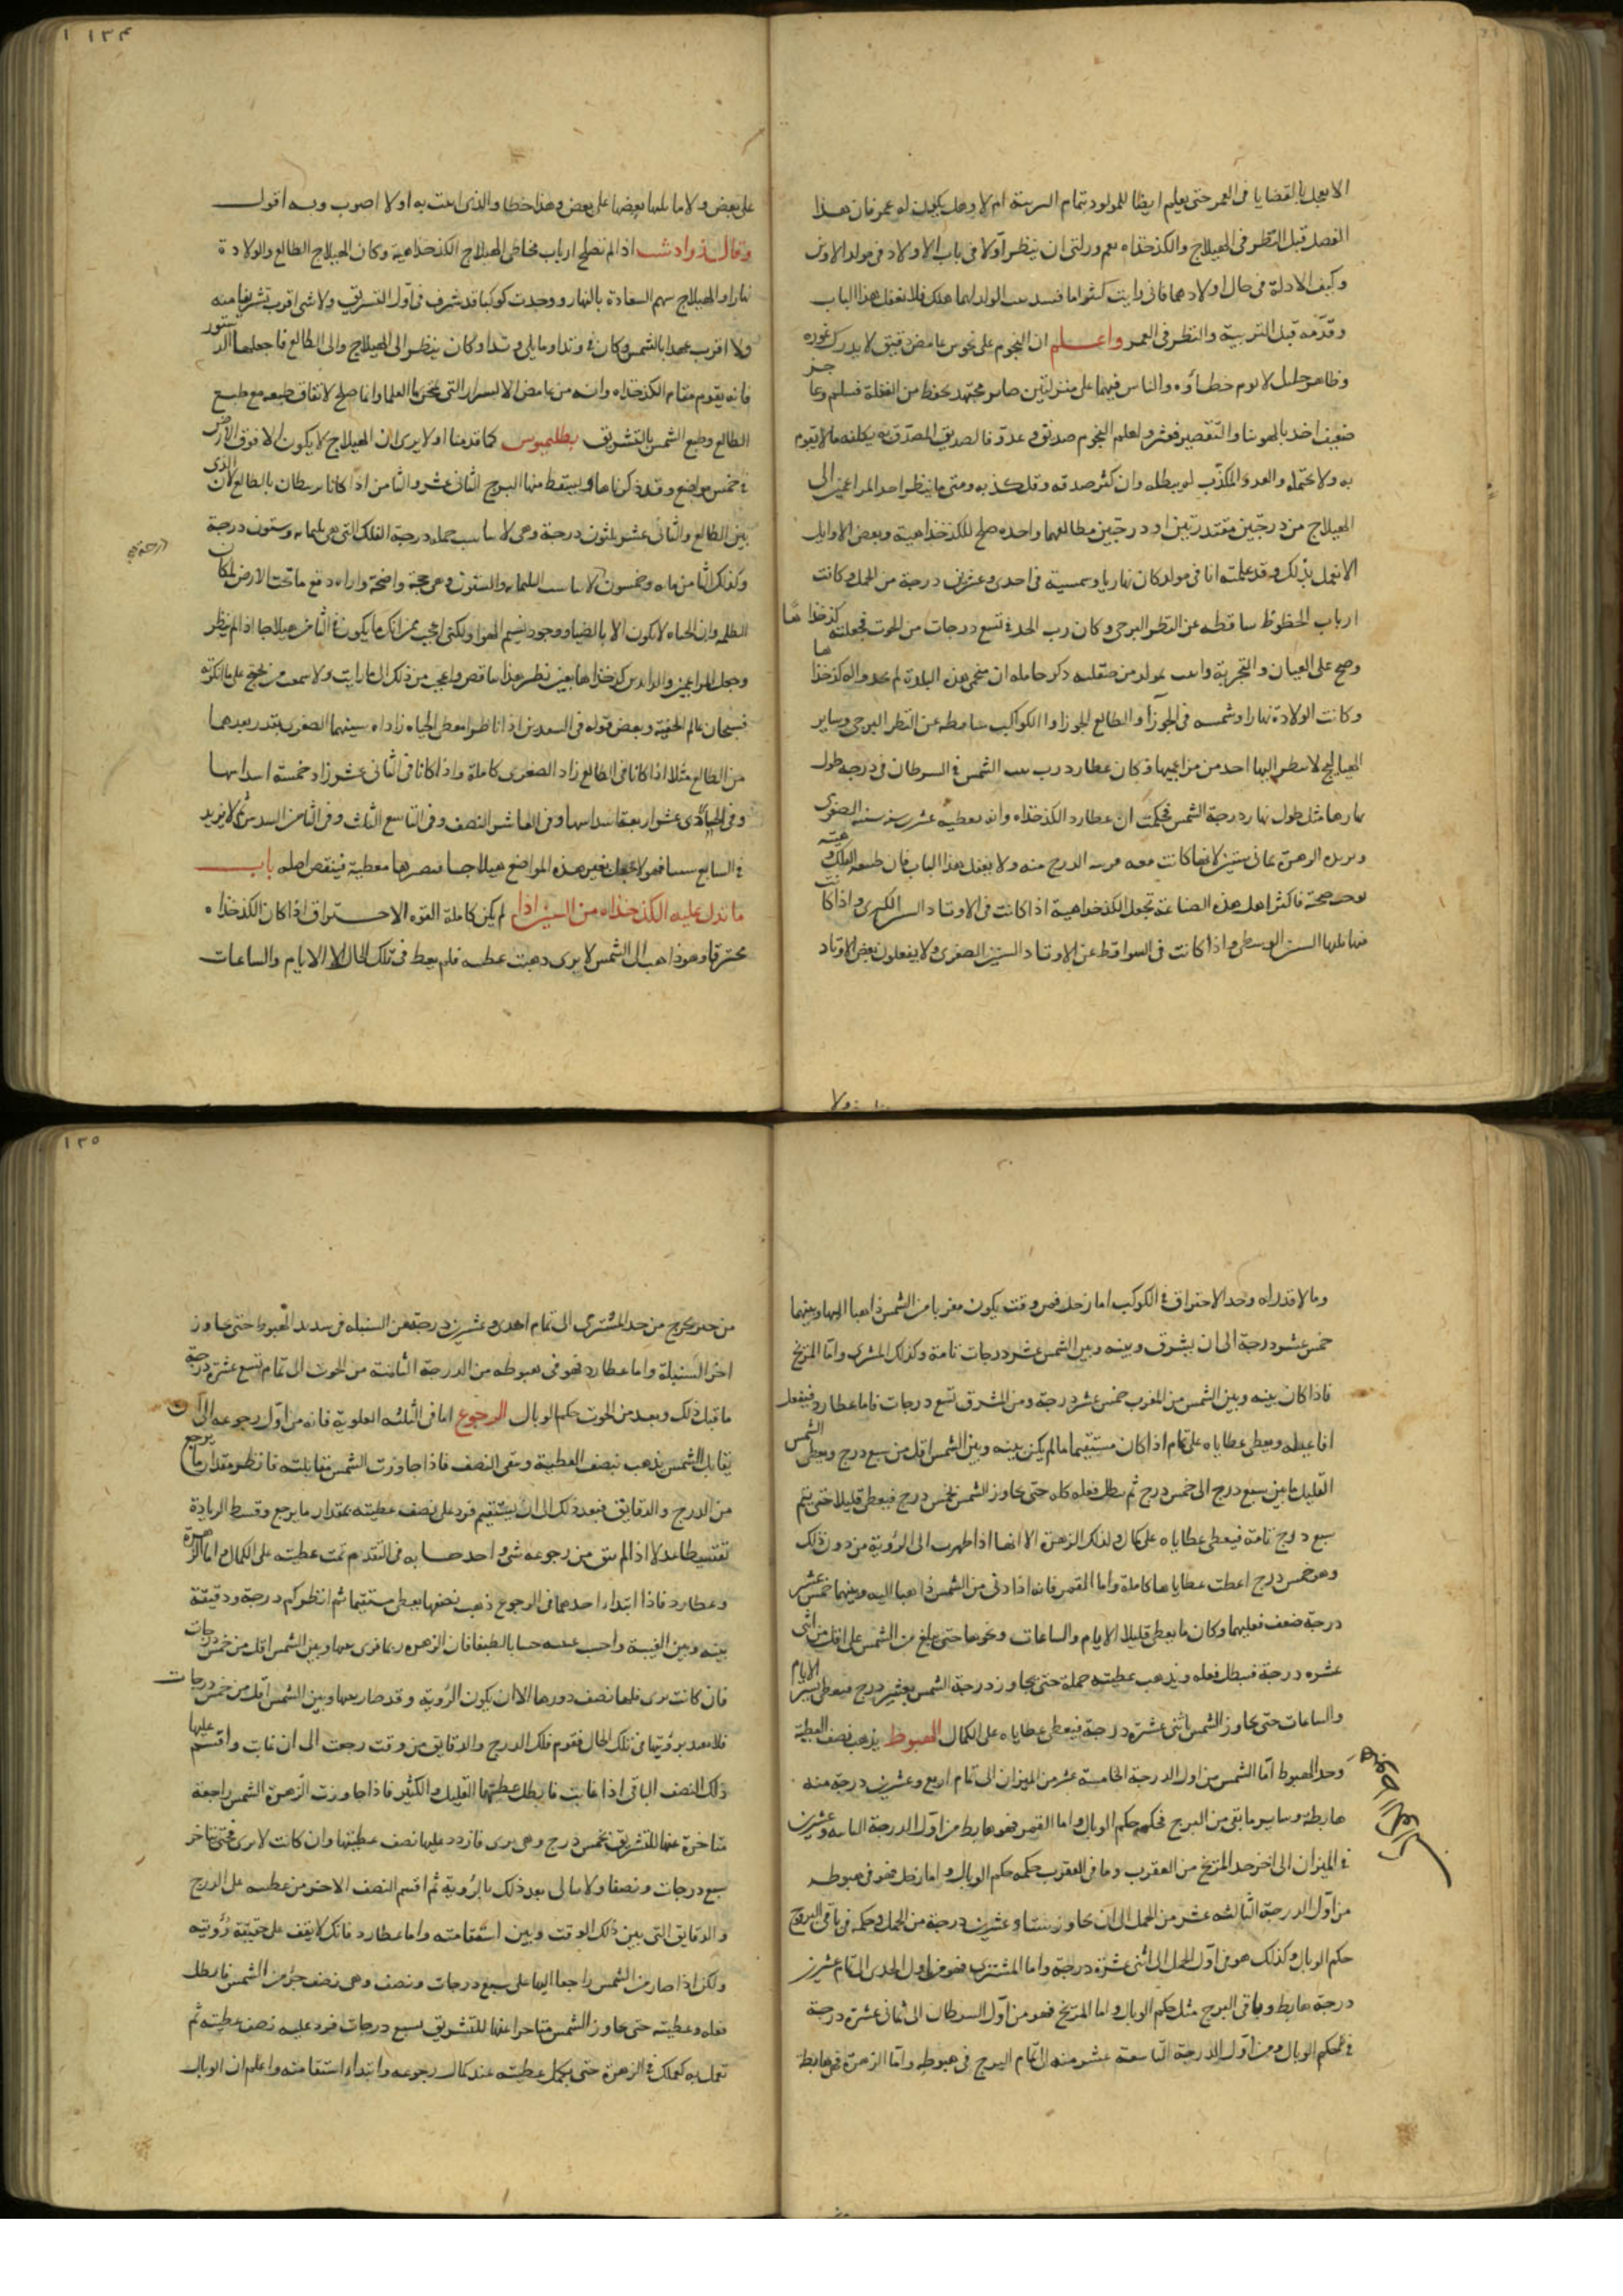 ١٣٤
الا يعجل بالقضايا فى العمر حتى يعلم ايضا للمولود بتمام التربية ام لا وهل يكون له عمر فان هذا
الفصل قبل النظر فى الهيلاج والكذخذاه نعم ورايتى ان ينظر اولا فى باب الاولاد فى مولد الابوين
وكيف الادلة فى حال اولادهما فانى رايت كثيرا ما فسد الولد لهما هلك فلا تغفل هذا الباب
وقدمه قبل التربية والنظر فى العمر واعلم ان النجوم على نحوين غامض دقيق لا يدرك غوره
وظاهر جليل لا يؤم خطاؤه والناس فيهما على منزلتين صابر مجتهد يحفظ من الغفلة فسلم وعاجز
ضعيف اخد بالهوينا والتقصير فعثر ولعلم النجوم صديق وعدو فالصديق المصدق به يكلفه ما لا يقوم
به ولا يحتمله والعدو المكذب له يبطله وان كثر صدقه وقل كذبه ومتى ما ينظر احد المزاعمين الى
الهيلاج من درجتين مقتدرتين او درجتين مطالعهما واحده صلح للكذخذاهية وبعض الاوايل
الا نعمل بذلك وقد علمته انا فى مولد كان نهاريا وشمسه فى احدى وعشرين درجة من الحمل وكانت
ارباب الحظوظ ساقطه عن النظر البرجى وكان رب الحد فى تسع درجات من الحوت فجعلته كذخذاها
وصح على العيان والتجربة واتيت بمولد من صقليه ذكر حامله ان منجمى هذه البلدة لم يجدوا له كذخذاها
وكانت الولادة نهارا وشمسه فى الجوزآ والطالع الجوزاء والكواكب ساقطه عن النظر البرجى وساير
الهياليج لا ينظر اليها احد من مزاعميها وكان عطارد رب بيت الشمس فى السرطان فى درجه طول
نهارها مثل طول نهار درجة الشمس فحكمت ان عطارد الكذخذاه وانه يعطيه عشرين سنه سنيه الصغرى
وتزيده الزهرة ثمانى سنين لانها كانت معه قريبه الدرج منه ولا يغفل هذا الباب فان طبيعه الفلك
توجب صحته فاكثر اهل هذه الصناعة تجعل الكذخذاهية اذا كانت فى الاوتاد السنين الكبرى واذا كانت
فيما يليها السنين الوسطى واذا كانت فى السواقط عن الاوتاد السنين الصغرى ولا يفضلون بعض الاوتاد
على بعض ولا ما يليها بعضها على بعض وهذا خطا والذى اتيت به اولا اصوب وبه اقول
وقال زرادشت اذا لم تصلح ارباب مخاطى الهيلاج الكذخذاهية وكان الهيلاج الطالع والولادة
نهارا والهيلاج سهم السعادة بالنهار ووجدت كوكبا قد شرف فى اول التشريق ولا شى اقرب تشريقا منه
ولا اقرب عهدا بالشمس وكان فى وتد او ما يلى وتدا وكان ينظر الى الهيلاج والى الطالع فاجعلها الدستور
فانه يقوم مقام الكذخذاه وانه من غامض الاسرار التى يخزنها العلما وانما صلح لاتفاق طبعه مع طبع
الطالع وطبع الشمس بالتشريق بطلميوس كما قدمنا اولا يرى ان الهيلاج لا يكون الا فوق الارض
فى خمس مواضع وقد ذكرناها ويسقط منها البرج الثانى عشر والثامن اذا كانا يرتبطان بالطالع لان الذى
بين الطالع والثانى عشر ثلثون درجة وهى لا تناسب جمله درجة الفلك التى هى ثلثمايه وستون درجة
وكذلك الثامن مايه وخمسون لا تناسب الثلثمايه والستون وهى حجة واضحة واراه دفع ما تحت الارض لمكان
الظلمه وان الحياه لا تكون الا بالضياء ووجود نسيم الهوا ولكنى اعجب ممن انكر ما يكون فى الثامن هيلاجا اذا لم ينظر
وجعل المزاعمين والزايدين كذخذاها بغير نظر هذا تناقض واعجب من ذلك انى ما رايت ولا سمعت من يحتج على ما انكرته
فسبحان عالم الخفية وبعض قوله فى السعدين اذا ناظرا معطى الحياه زاداه سنيهما الصغرى بقدر بعدهما
من الطالع مثلا اذا كانا فى الطالع زاد الصغرى كاملة واذا كانا فى الثانى عشر زاد خمسة اسداسها
وفى الحادى عشر اربعة اسداسها وفى العاشر النصف وفى التاسع الثلث وفى الثامن السدس ثم لا يزيد
فى السابع شيئا فهو لا يجعل بغير هذه المواضع هيلاجا فيصيرها معطية فينقص اصله باب
ما تدل عليه الكذخذاه من السنين اذا لم يكن كاملة القوه الاحتراق اذا كان الكذخذاه
محترقا وهو ذاهب الى الشمس لا يرى ذهبت عطيته فلم يعط فى تلك الحال الا الايام والساعات
١٣٥
وما لا قدر له وحد الاحتراق فى الكوكب اما زحل فمن وقت يكون مغربا من الشمس ذاهبا اليها وبينهما
خمس عشر درجة الى ان يشرق وبينه وبين الشمس عشر درجات تامة وكذلك المشترى واما المريخ
فاذا كان بينه وبين الشمس من المغرب خمس عشر درجة ومن المشرق تسع درجات فاما عطارد فيفعل
افاعيله ويعطى عطاياه على تمام اذا كان مستقيما ما لم يكن بينه وبين الشمس اقل من سبع درج ويعطى
القليل ما بين سبع درج الى خمس درج ثم يبطل فعله كله حتى يجاوز الشمس بخمس درج فيعطى قليلا حتى يتم
سبع درج تامة فيعطى عطاياه على كمال وكذلك الزهرة الا انها اذا ظهرت الى الرؤية من دون ذلك
وهو خمس درج اعطت عطاياها كاملة واما القمر فانه اذا دنى من الشمس ذاهبا اليه وبينهما خمس عشر
درجة ضعف فعليهما وكان ما يعطى قليلا الايام والساعات ونحوها حتى يبلغ من الشمس على اقل من اثنى
عشره درجة فيبطل فعله ويذهب عطيته جملة حتى يجاوز درجة الشمس بعشر درج فيعطى يسير الايام
والساعات حتى يجاوز الشمس باثنى عشرة درجة فيعطى عطاياه على الكمال الهبوط يذهب نصف العطية
وحد الهبوط اما الشمس من اول الدرجة الخامسة عشر من الميزان الى تمام اربع وعشرين درجة منه
هابطة وساير ما بقى من البرج فحكمه حكم الوبال واما القمر فهو هابط من اول الدرجة الثامنه وعشرين
فى الميزان الى اخر حد المريخ من العقرب وما فى العقرب حكمه حكم الوبال واما زحل فهو فى هبوطه
من اول الدرجة الثالثه عشر من الحمل الى ان يجاوز ستا وعشرين درجة من الحمل وحكمه فى باقى البرج
حكم الوبال وكذلك هو من اول الحمل الى اثنى عشرة درجة واما المشترى فهو من اول الجدى الى تمام عشرين
درجة هابط وباقى البرج مثل حكم الوبال واما المريخ فهو من اول السرطان الى ثمانى عشرة درجة
فى حكم الوبال ومن اول الدرجة التاسعة عشر منه الى تمام البرج فى هبوطه واما الزهرة فهى هابطة
من حين يخرج من حد المشترى الى تمام احدى وعشرين درجة من السنبله فى شديد الهبوط حتى يجاوز
اخر السنبلة واما عطارد فهو فى هبوطه من الدرجة الثامنة من الحوت الى تمام تسع عشرة درجة
ما قبل ذلك وبعد من الحوت حكم الوبال الرجوع اما فى الثلثه العلوية فانه من اول رجوعه الى ان
يقابل الشمس يذهب نصف العطية ويبقى النصف فاذا جاوزت الشمس مقابلته فانظر مقدار ما يرجع
من الدرج والدقايق فبعد ذلك الى ان يستقيم فزد على نصف عطيته بمقدار ما يرجع وقسط الزيادة
تقسيطا عدلا اذا لم يبق من رجوعه شى واحد حسابه فى التقدم تمت عطيته على الكمال واما الزهرة
وعطارد فاذا ابتداء احدهما فى الرجوع ذهب نصفها يعطى مستقيما ثم انظر كم درجة ودقيقة
بينه وبين الغيبة واحسب عنه حسابا لطيفا فان الزهره ربما ترى بينها وبين الشمس اقل من خمس درجات
فان كانت ترى فلها نصف دورها الا ان يكون الرؤية وقد صار بينها وبين الشمس اقل من خمس درجات
فلا تعد برؤيتها فى تلك الحال فقوم فلك الدرج والدقايق من وقت رجعت الى ان غابت واقسم عليها
ذلك النصف الباقى اذا غابت فابطل عطيتها القليل والكثير فاذا جاوزت الزهرة الشمس راجعة
متاخرة عنها للتشريق بخمس درج وهى ترى فازدد عليها نصف عطيتها وان كانت لا ترى فحتى تتاخر
سبع درجات ونصفا ولا تبالى بعد ذلك بالرؤية ثم اقسم النصف الاخر من عطيته على الدرج
والدقايق التى بين ذلك الوقت وبين استقامته واما عطارد فانك لا تقف على حقيقة رؤيته
ولكن اذا صار من الشمس راجعا اليها على سبع درجات ونصف وهى نصف جرم الشمس فابطل
فعله وعطيته حتى يجاوز الشمس متاخرا عنها للتشريق بسبع درجات فزد عليه نصف عطيته ثم
تعمل به كعملك فى الزهرة حتى يكمل عطيته عند كمال رجوعه وابتداء استقامته واعلم ان الوبال